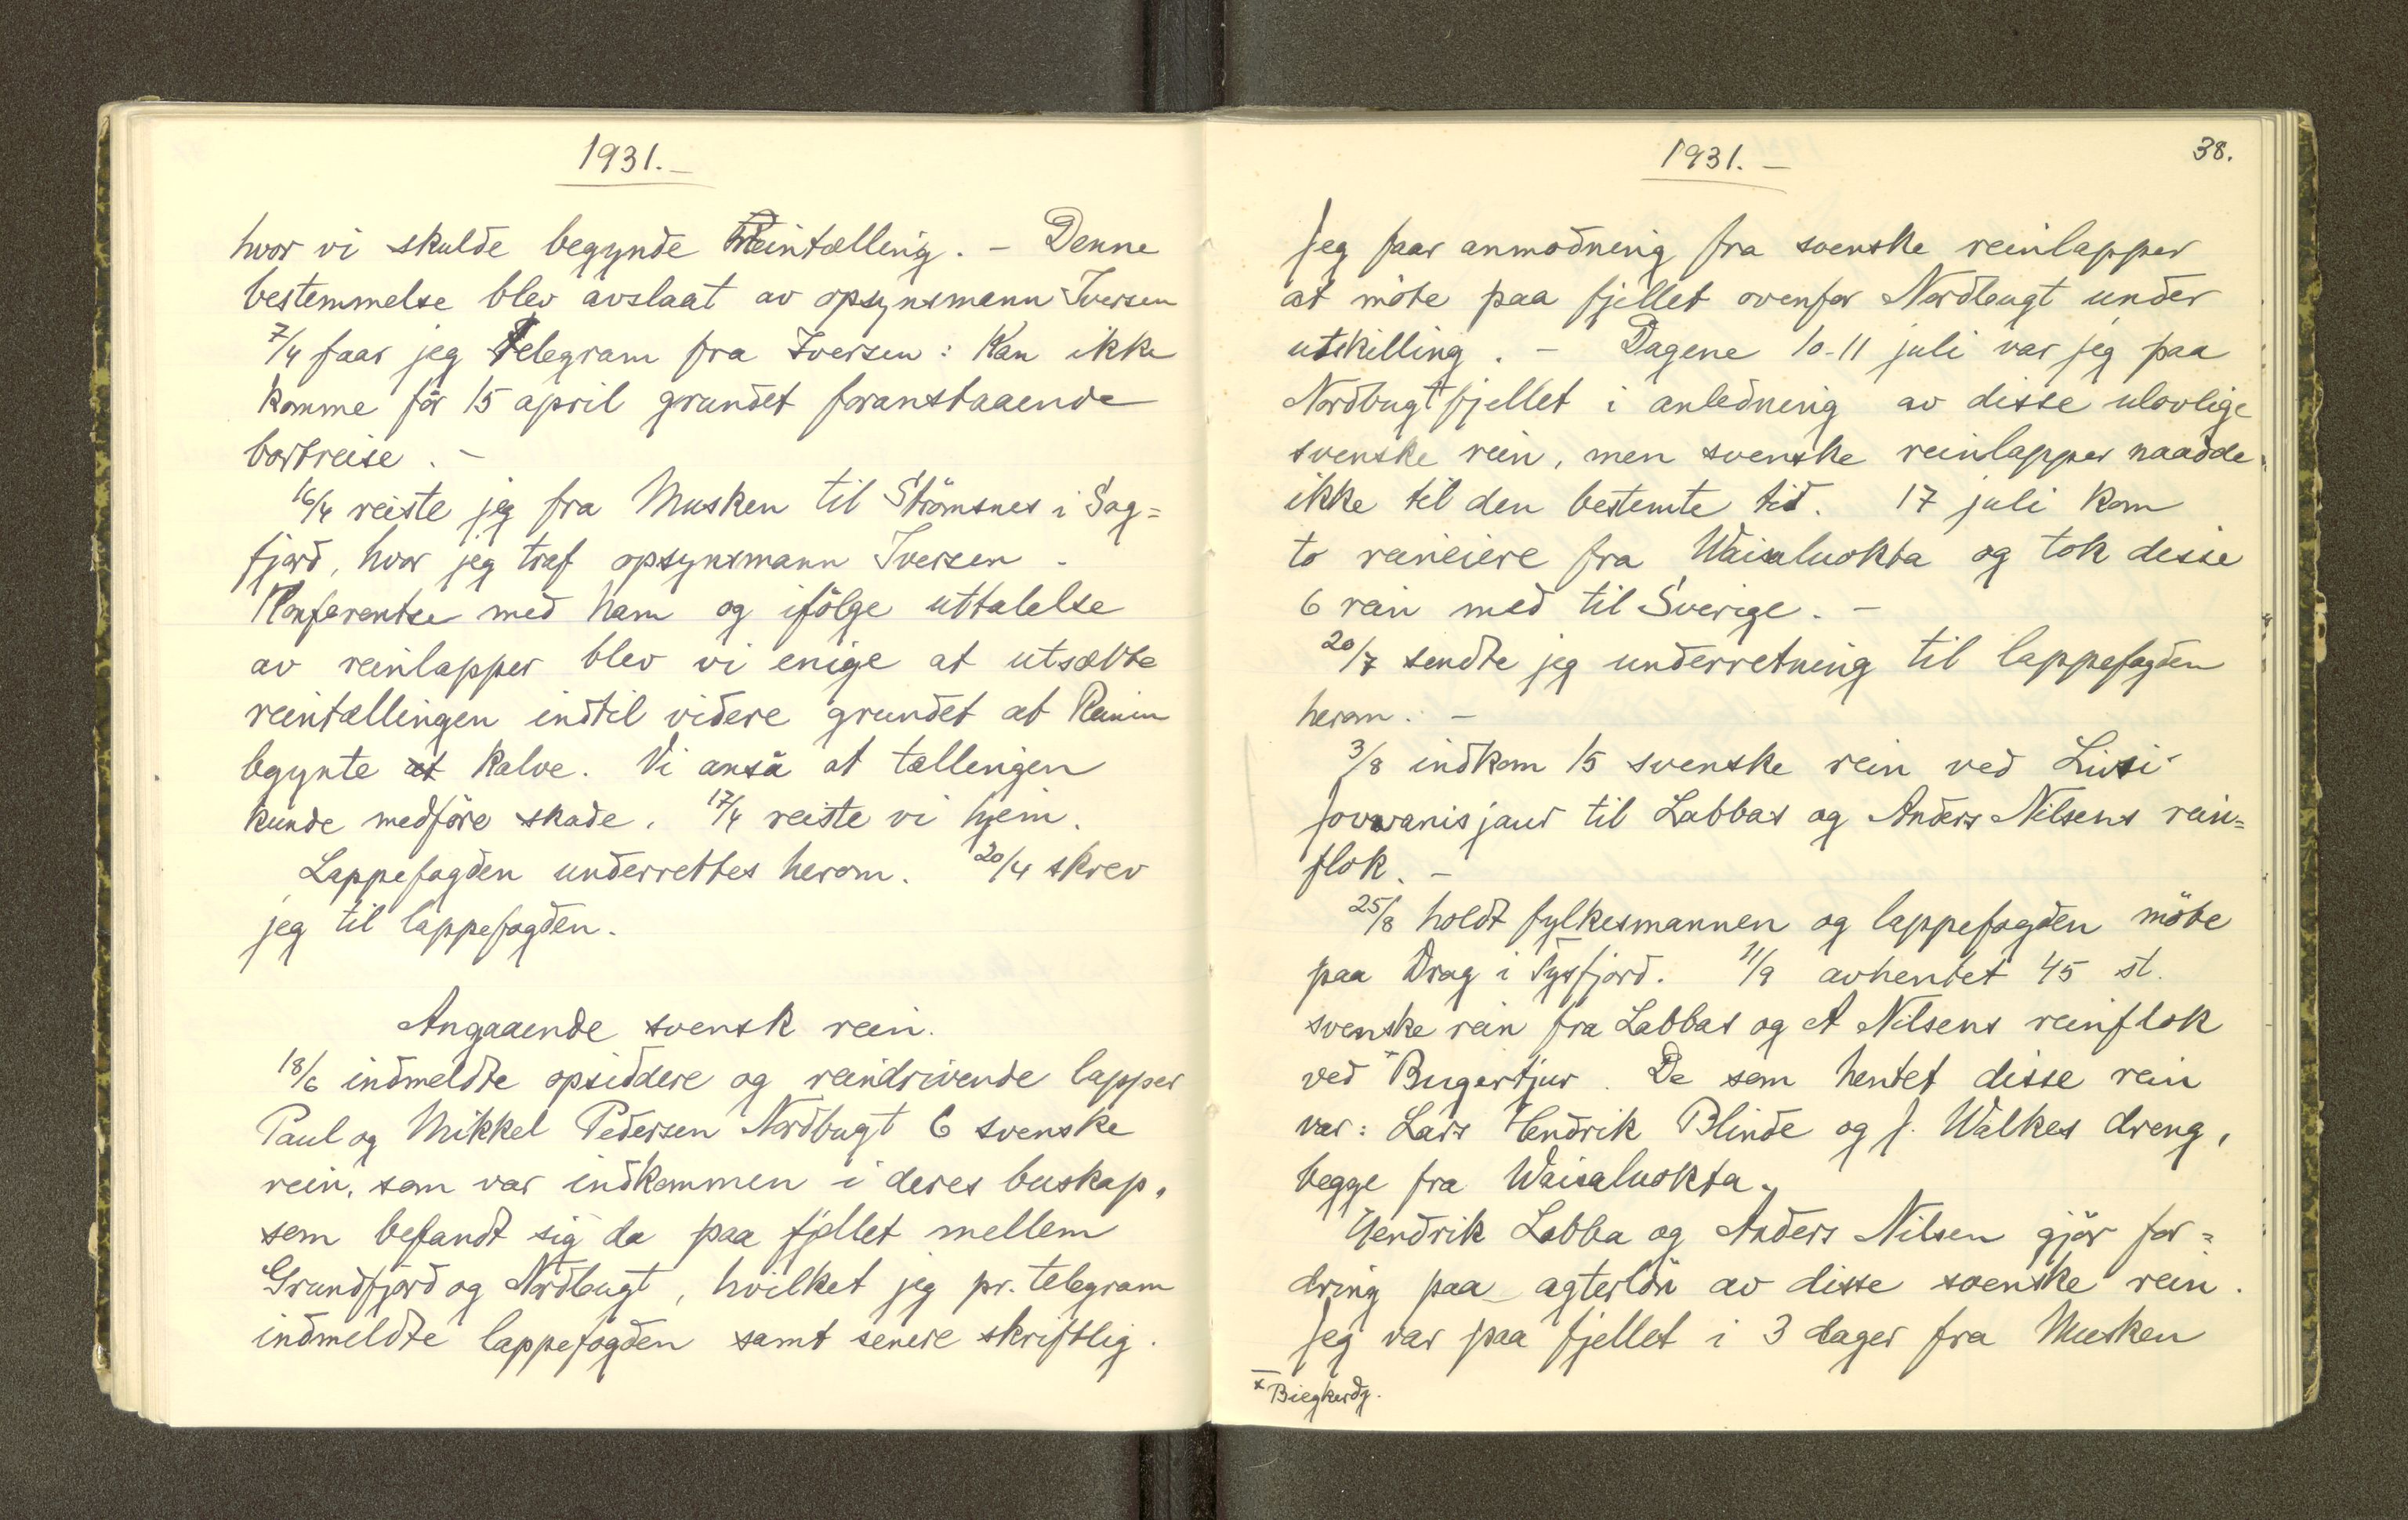 1931.-
hvor vi skulde begynde Reintælling. - Denne
bestemmelse blev avslaat av opsynsmann Iversen
7/4 faar jeg Telegram fra Iversen: Kan ikke
komme för 15 april grundet foranstaaende
bortreise. -
16/4 reiste jeg fra Musken til Strömsnes i Sag=
fjord, hvor jeg traf opsynsmann Iversen -
Konferentse med ham og ifölge uttalelse
av reinlapper blev vi enige at utsætte
reintællingen indtil videre grundet at Reinen
bgynte at kalve. Vi anså at tællingen
kunde medföre skade. 17/4 reiste vi hjem.
Lappefogden underrettes herom. 20/4 skrev
jeg til lappefogden.
Angaaende svensk rein.
18/6 indmeldte opsiddere og reindrivende lapper
Paul og Mikkel Pedersen Nordbugt 6 svenske
rein, som var indkommen i deres buskap,
som befandt sig da paa fjellet mellem
Grundfjord og Nordbugt, hvilket jeg pr. telegram
indmeldte lappefogden samt senere skriftlig.
1931. - 38.
Jeg faar anmodning fra svenske reinlapper
at möte paa fjellet ovenfor Nordbugt under
utskilling. - Dagene 10-11 juli var jeg paa
Nordbugtfjellet i anledning av disse ulovlige
svenske rein, men svenske reinlapper naadde
ikke til den bestemte tid. 17 juli kom
to reineiere fra Waisaluokta og tok disse
6 rein med til Sverige. -
20/7 sendte jeg underretning til lappefogden
herom. -
3/8 indkom 15 svenske rein ved Livsi-
Jovvanisjaur til Labbas og Anders Nilsens rein=
flok. -
25/8 holdt fylkesmannen og lappefogden möte
paa Drag i Tysfjord. 11/9 avhentet 45 st.
svenske rein fra Labbas og A Nilsens reinflok
ved x Bugertjur. De som hentet disse rein
var: Lars Hendrik Blinde og J. Walkes dreng,
begge fra Waisaluokta.
Hendrik Labba og Anders Nilsen gjör for=
dring paa agterlön av disse svenske rein.
Jeg var paa fjellet i 3 dager fra Musken
x Biegkerdg.